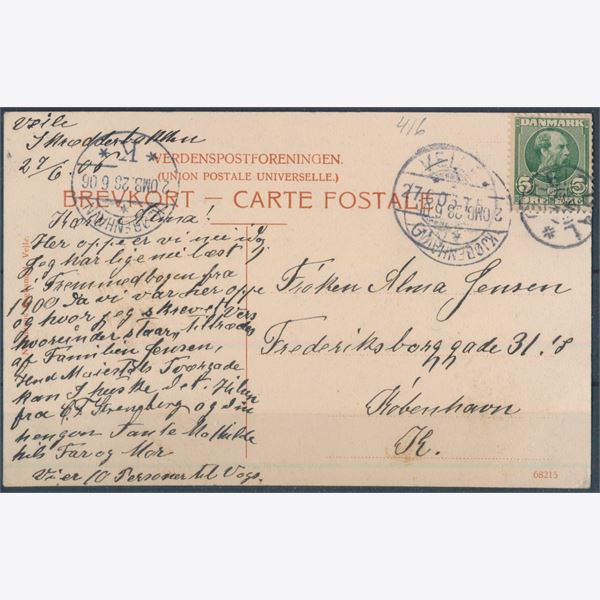 Vejle
Skrædderbakken
27/6. 06
416
DANMARK
5 5
VERDENSPOSTFORENINGEN.
(UNION POSTALE UNIVERSELLE.)
BREVKORT — CARTE POSTALE
KJØBENHAVN
K
2 OMB. 28 6 06
VEJLE
27.6.06
KJØBENHAVN
2 OMB. 28 6 06
Kære Alma!
Her oppe er vi nu
Jeg har lige nu læst
i Fremmedbogen fra
1900 Da vi var her oppe
og hvor jeg skrev et Vers
hvorunder staar, tiltrædes
af Familien Jensen,
Kan I huske det. Hilsen
fra C. F. Strengberg og din
hengivne Tante Mathilde
hils Far og Mor
Vi er 10 Personer til Vogs.
Frøken Alma Jensen
Frederiksborggade 31.
København
K.
68215